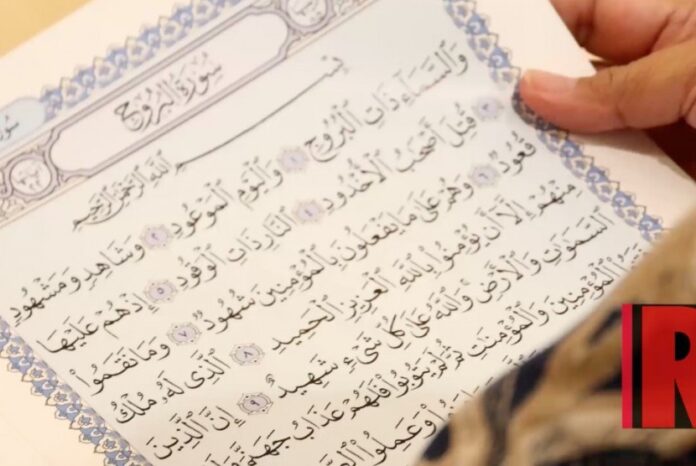 سُورَةُ البُرُوجِ
بِسْمِ ٱللَّهِ ٱلرَّحْمَٰنِ ٱلرَّحِيمِ
وَٱلسَّمَآءِ ذَاتِ ٱلْبُرُوجِ ١ وَٱلْيَوْمِ ٱلْمَوْعُودِ ٢ وَشَاهِدٍ وَمَشْهُودٍ
٣ قُتِلَ أَصْحَٰبُ ٱلْأُخْدُودِ ٤ ٱلنَّارِ ذَاتِ ٱلْوَقُودِ ٥ إِذْ هُمْ عَلَيْهَا
قُعُودٌ ٦ وَهُمْ عَلَىٰ مَا يَفْعَلُونَ بِٱلْمُؤْمِنِينَ شُهُودٌ ٧ وَمَا نَقَمُوا۟
مِنْهُمْ إِلَّآ أَن يُؤْمِنُوا۟ بِٱللَّهِ ٱلْعَزِيزِ ٱلْحَمِيدِ ٨ ٱلَّذِى لَهُۥ مُلْكُ
ٱلسَّمَٰوَٰتِ وَٱلْأَرْضِ وَٱللَّهُ عَلَىٰ كُلِّ شَىْءٍ شَهِيدٌ ٩ إِنَّ ٱلَّذِينَ
ٱلْمُؤْمِنِينَ وَٱلْمُؤْمِنَٰتِ ثُمَّ لَمْ يَتُوبُوا۟ فَلَهُمْ عَذَابُ جَهَنَّمَ
وَعَمِلُوا۟
R